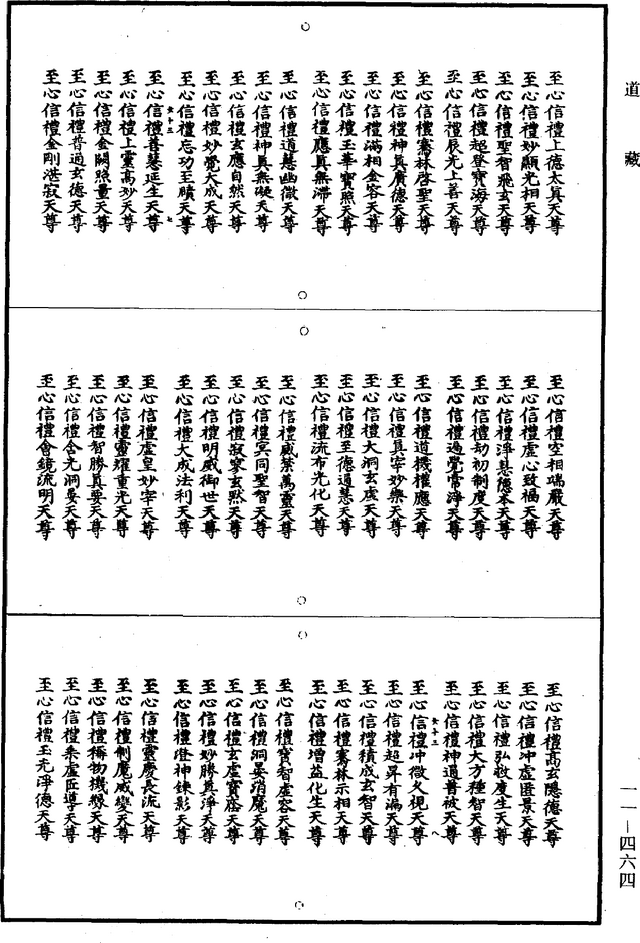 道藏
至心信禮上德太真天尊
至心信禮妙顯光相天尊
至心信禮聖智飛玄天尊
至心信禮超登寶海天尊
至心信禮辰光上善天尊
至心信禮騫林啓聖天尊
至心信禮神真廣德天尊
至心信禮滿相金容天尊
至心信禮玉華寶照天尊
至心信禮應真無滯天尊
至心信禮道慧幽微天尊
至心信禮神真無礙天尊
至心信禮玄應自然天尊
至心信禮妙覺大成天尊
至心信禮忘功至賾天尊
至心信禮善慧延生天尊
至心信禮上靈高妙天尊
至心信禮金闕照量天尊
至心信禮普過玄德天尊
至心信禮金剛湛寂天尊
至心信禮空相端嚴天尊
至心信禮虛心致福天尊
至心信禮淨慧德本天尊
至心信禮劫初制度天尊
至心信禮遍覺常淨天尊
至心信禮道機權應天尊
至心信禮真宰妙樂天尊
至心信禮大洞玄虛天尊
至心信禮至德通慧天尊
至心信禮流布光化天尊
至心信禮威禁萬靈天尊
至心信禮冥同聖智天尊
至心信禮寂寥玄默天尊
至心信禮明威御世天尊
至心信禮大成法利天尊
至心信禮虛皇妙宰天尊
至心信禮靈耀重光天尊
至心信禮智勝真要天尊
至心信禮含光洞要天尊
至心信禮會鏡流明天尊
至心信禮高玄隱德天尊
至心信禮沖虛匿景天尊
至心信禮弘救度生天尊
至心信禮大方種智天尊
至心信禮神通普被天尊
至心信禮沖微久視天尊
至心信禮超昇有漏天尊
至心信禮積成玄智天尊
至心信禮騫林示相天尊
至心信禮增益化生天尊
至心信禮寶智虛容天尊
至心信禮洞晏消魔天尊
至心信禮玄虛寶藏天尊
至心信禮妙勝真淨天尊
至心信禮澄神鍊影天尊
至心信禮靈慶長流天尊
至心信禮制魔威變天尊
至心信禮稱物機緣天尊
至心信禮乘虛匠導天尊
至心信禮玉光淨德天尊
一一—四六四